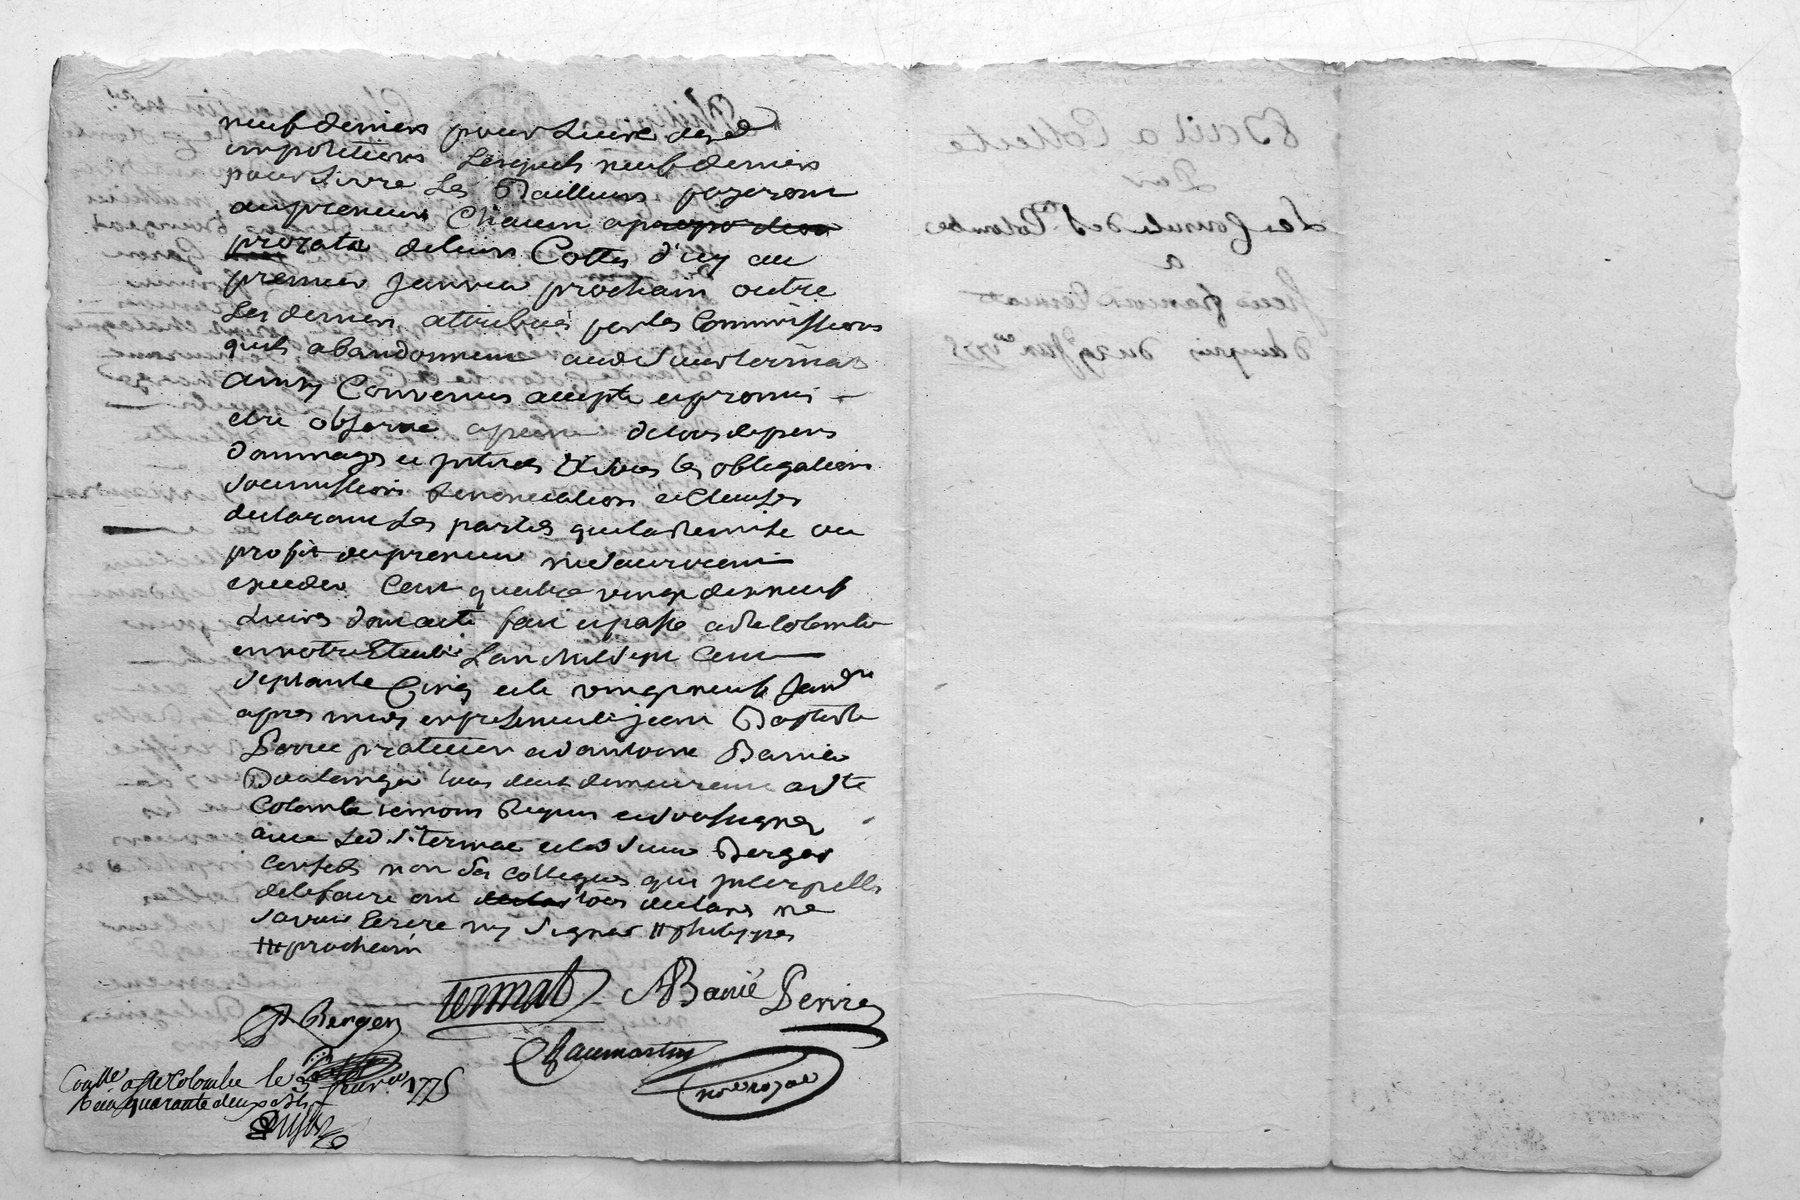 neuf deniers pour Livre desd
impositions Lesquels neuf deniers
pour Livre Les Tailleurs payeront
au preneur Chacun a proportion
prorata de leurs Cottes d'icy au
premier Janvier prochain outre
Les deniers attribués par les Commissions
quils abandonnent aud Sieur termat
ainsy Convenus accepté et promis
etre observé a peine de tous depens
dommages et interets Et sous les obligations
soumissions Renonciations et Clauses
declarant Les parties que la Remise ou
profit du preneur ne sauroient
exceder Cent quatre vingt dix neuf
Livres dont acte fait et passé a Ste Colombe
en notre Etude L'an Mil Sept Cent
Septante Cinq et le vingt neuf Janvier
apres midy en presence de jean Baptiste
Perrie praticien et d'antoine Barrié
Boulanger tous deux demeurant a Ste
Colombe temoins Requis et Soussignes
avec Led Sr. termat et led Sieur Berger
Consuls non Ses Collegues qui interpellés
de le faire ont declar tous declaré ne
savoir Ecrire ny Signer # philippes
### prochain
termat ABarrié Perrie
Berger
Chaumartin
notre royal
Conlle a Ste Colombe le 3 fevrer 1775
Reçu quarante deux sols
Bail a Collecte
Par
Les Consuls de Ste Colombe
a
Sieur françois termat
du 29 Janer 1775